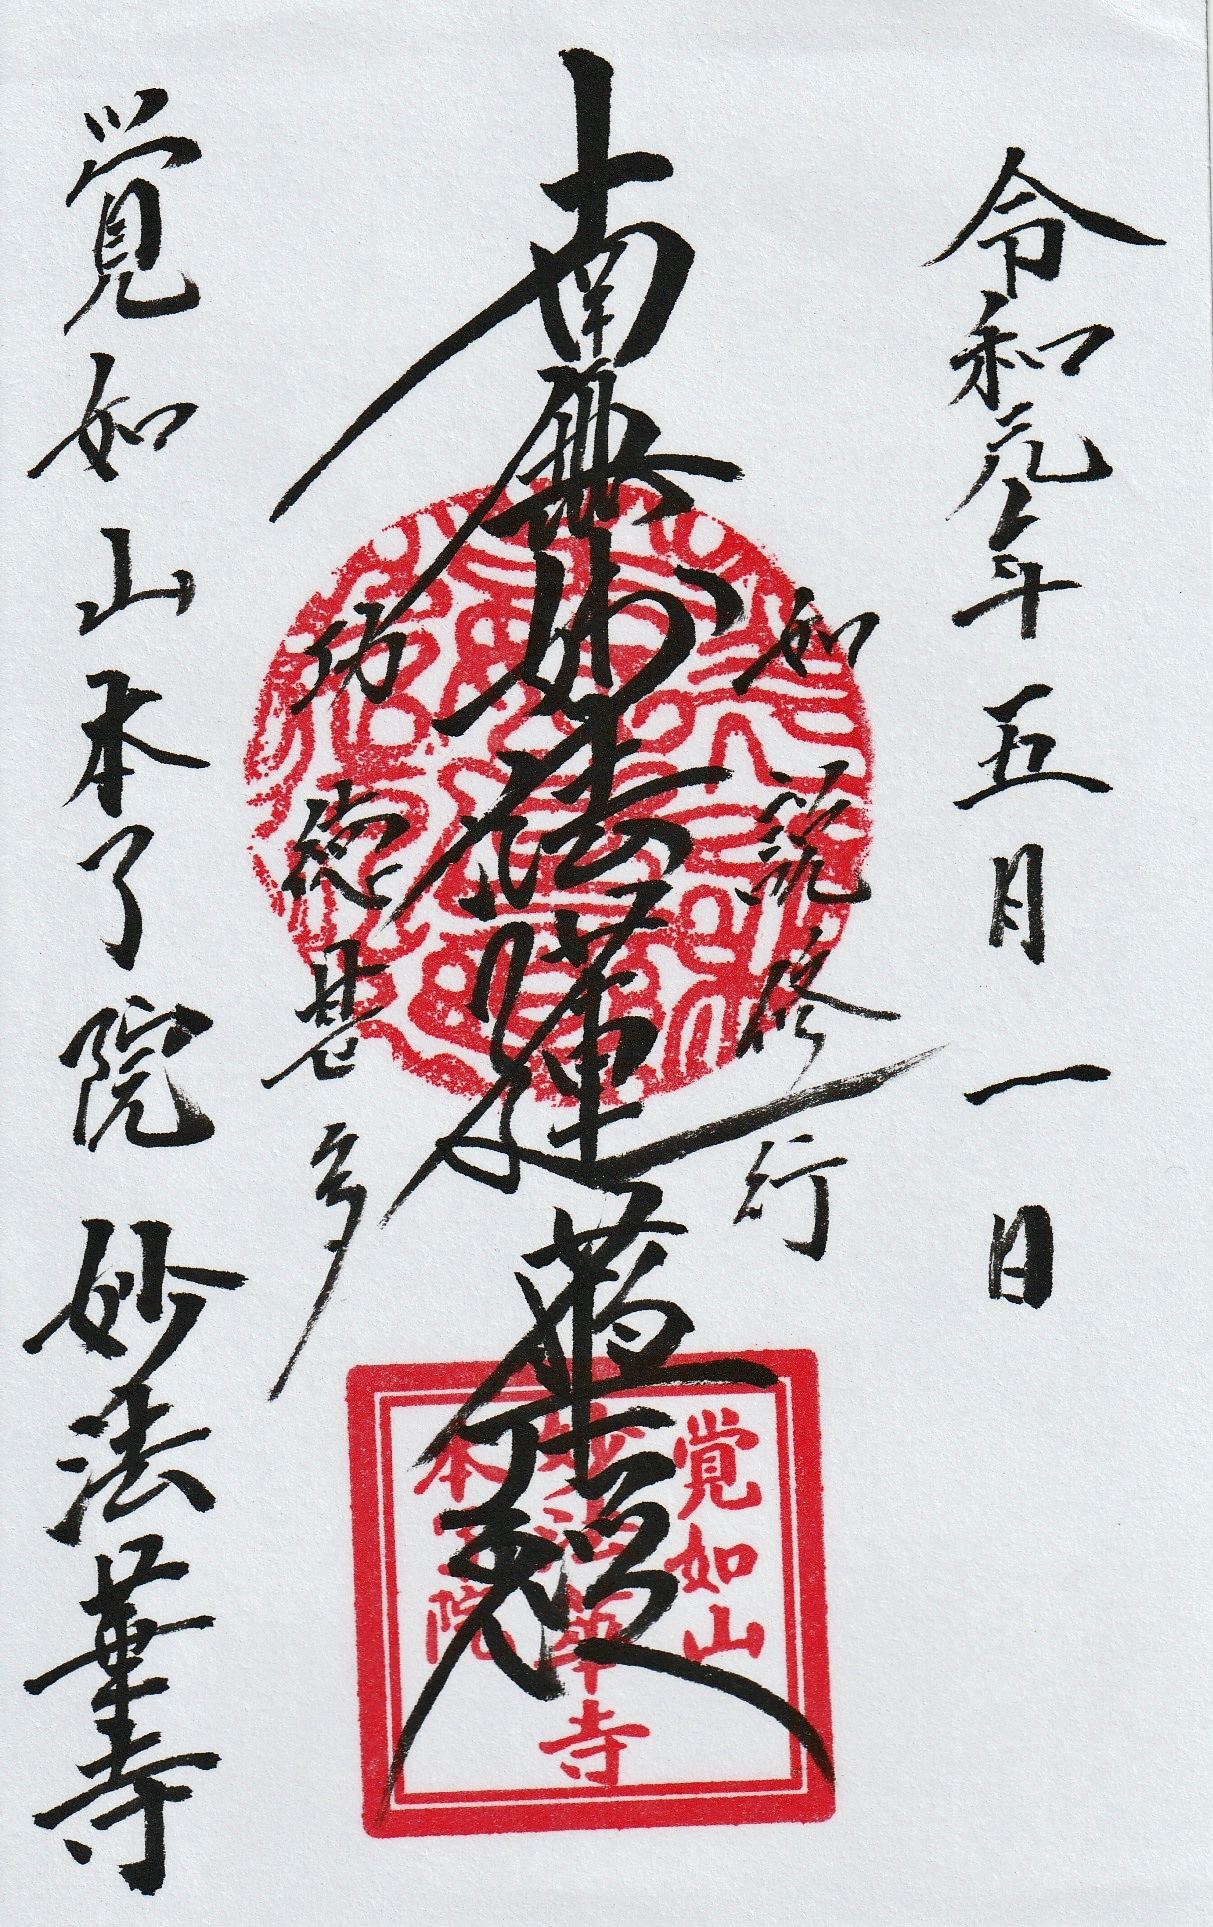 令和元年五月一日
如説修行
南無妙法蓮華経
功徳甚多
覚如山本了院 妙法華寺
覚如山
妙法華寺
本了院